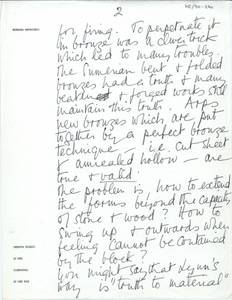 2
BARBARA HEPWORTH
for firing. To perpetuate it
in bronze was a clever trick
which led to many troubles.
The Sumerian bent & folded
bronzes had a truth & many
& forged works still
maintain this truth. Arps
new bronzes which are put
together by a perfect bronze
technique – i.e. cut sheet
& annealed hollow – are
true & valid.
The problem is, how to extend
the forms beyond the capacity
of stone & wood? How to
swing up & outwards when
feeling cannot be contained
by the block?
You might say that Lynn's
way is "truth to material"